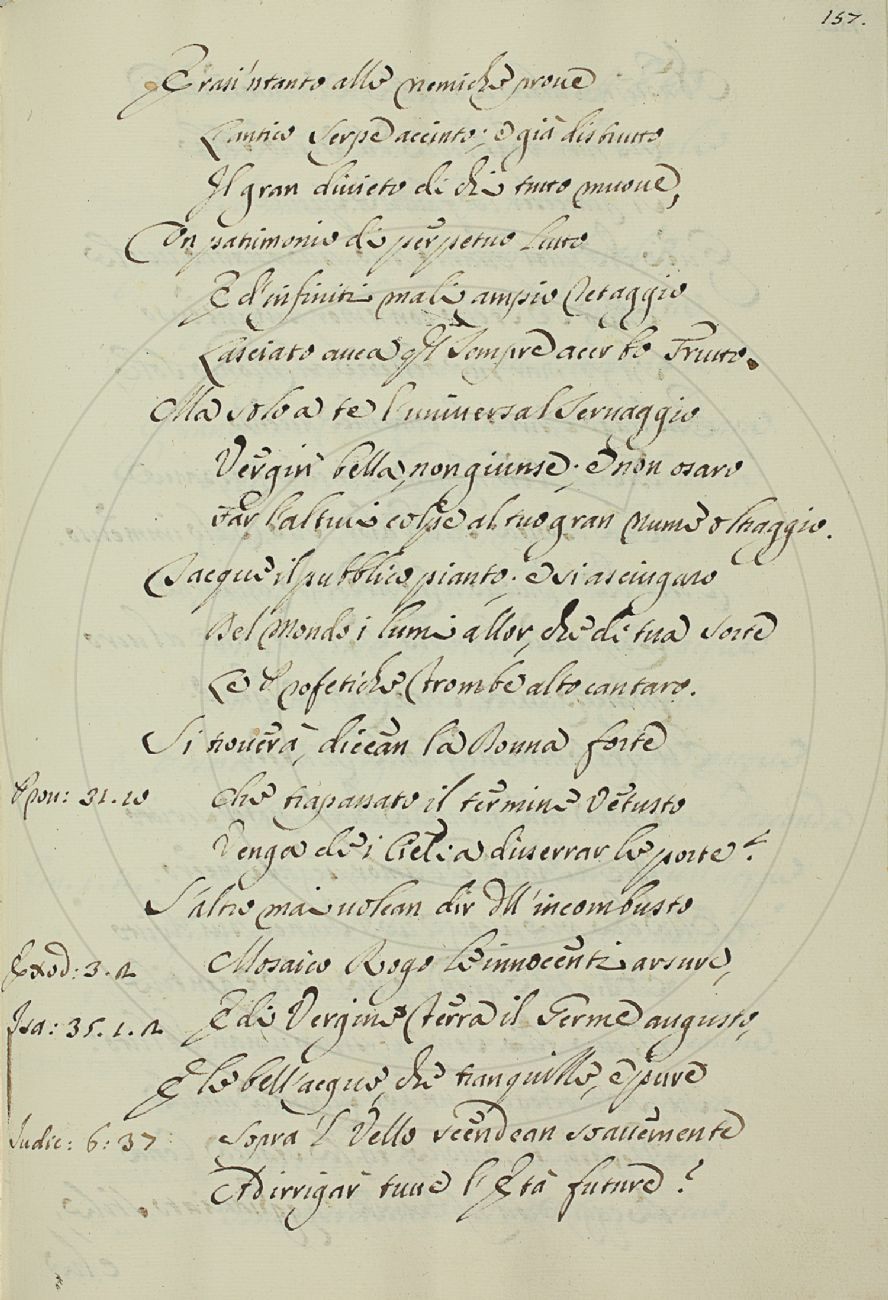 157.
Erasi 'ntanto alle nemiche prove
L'antico Serpe accinto; e già distrutto
Il gran divieto di chi tutto muove,
Un patrimonio di perpetuo lutto
E d'infiniti mali ampio retaggio
Lasciato avea quel sempre acerbo Frutto.
Ma solo a te l'universal servaggio
Vergin bella, non giunse; e non osaro
Far l'altrui colpe al tuo gran nume oltraggio.
Tacque il pubblico pianto; e si asciugaro
Del Mondo i lumi allor, che di tua sorte
Le Profetiche trombe alto cantaro.
Si troverà, dicean la Donna forte
Prov: 31. 10 Che trapassato il termine vetusto
Venga de i Cieli a diserrar le porte?
S'altro mai volean dir dell'incombusto
Exod: 3. 2 Mosaico Rogo le innocenti arsure,
Isa: 35. 1. 2 E di Vergine terra il Germe augusto,
E le bell'acque, che tranquille, e pure
Judic: 6: 37 Sopra 'l Vello scendean soavemente
Ad irrigar tutte l'Età future?